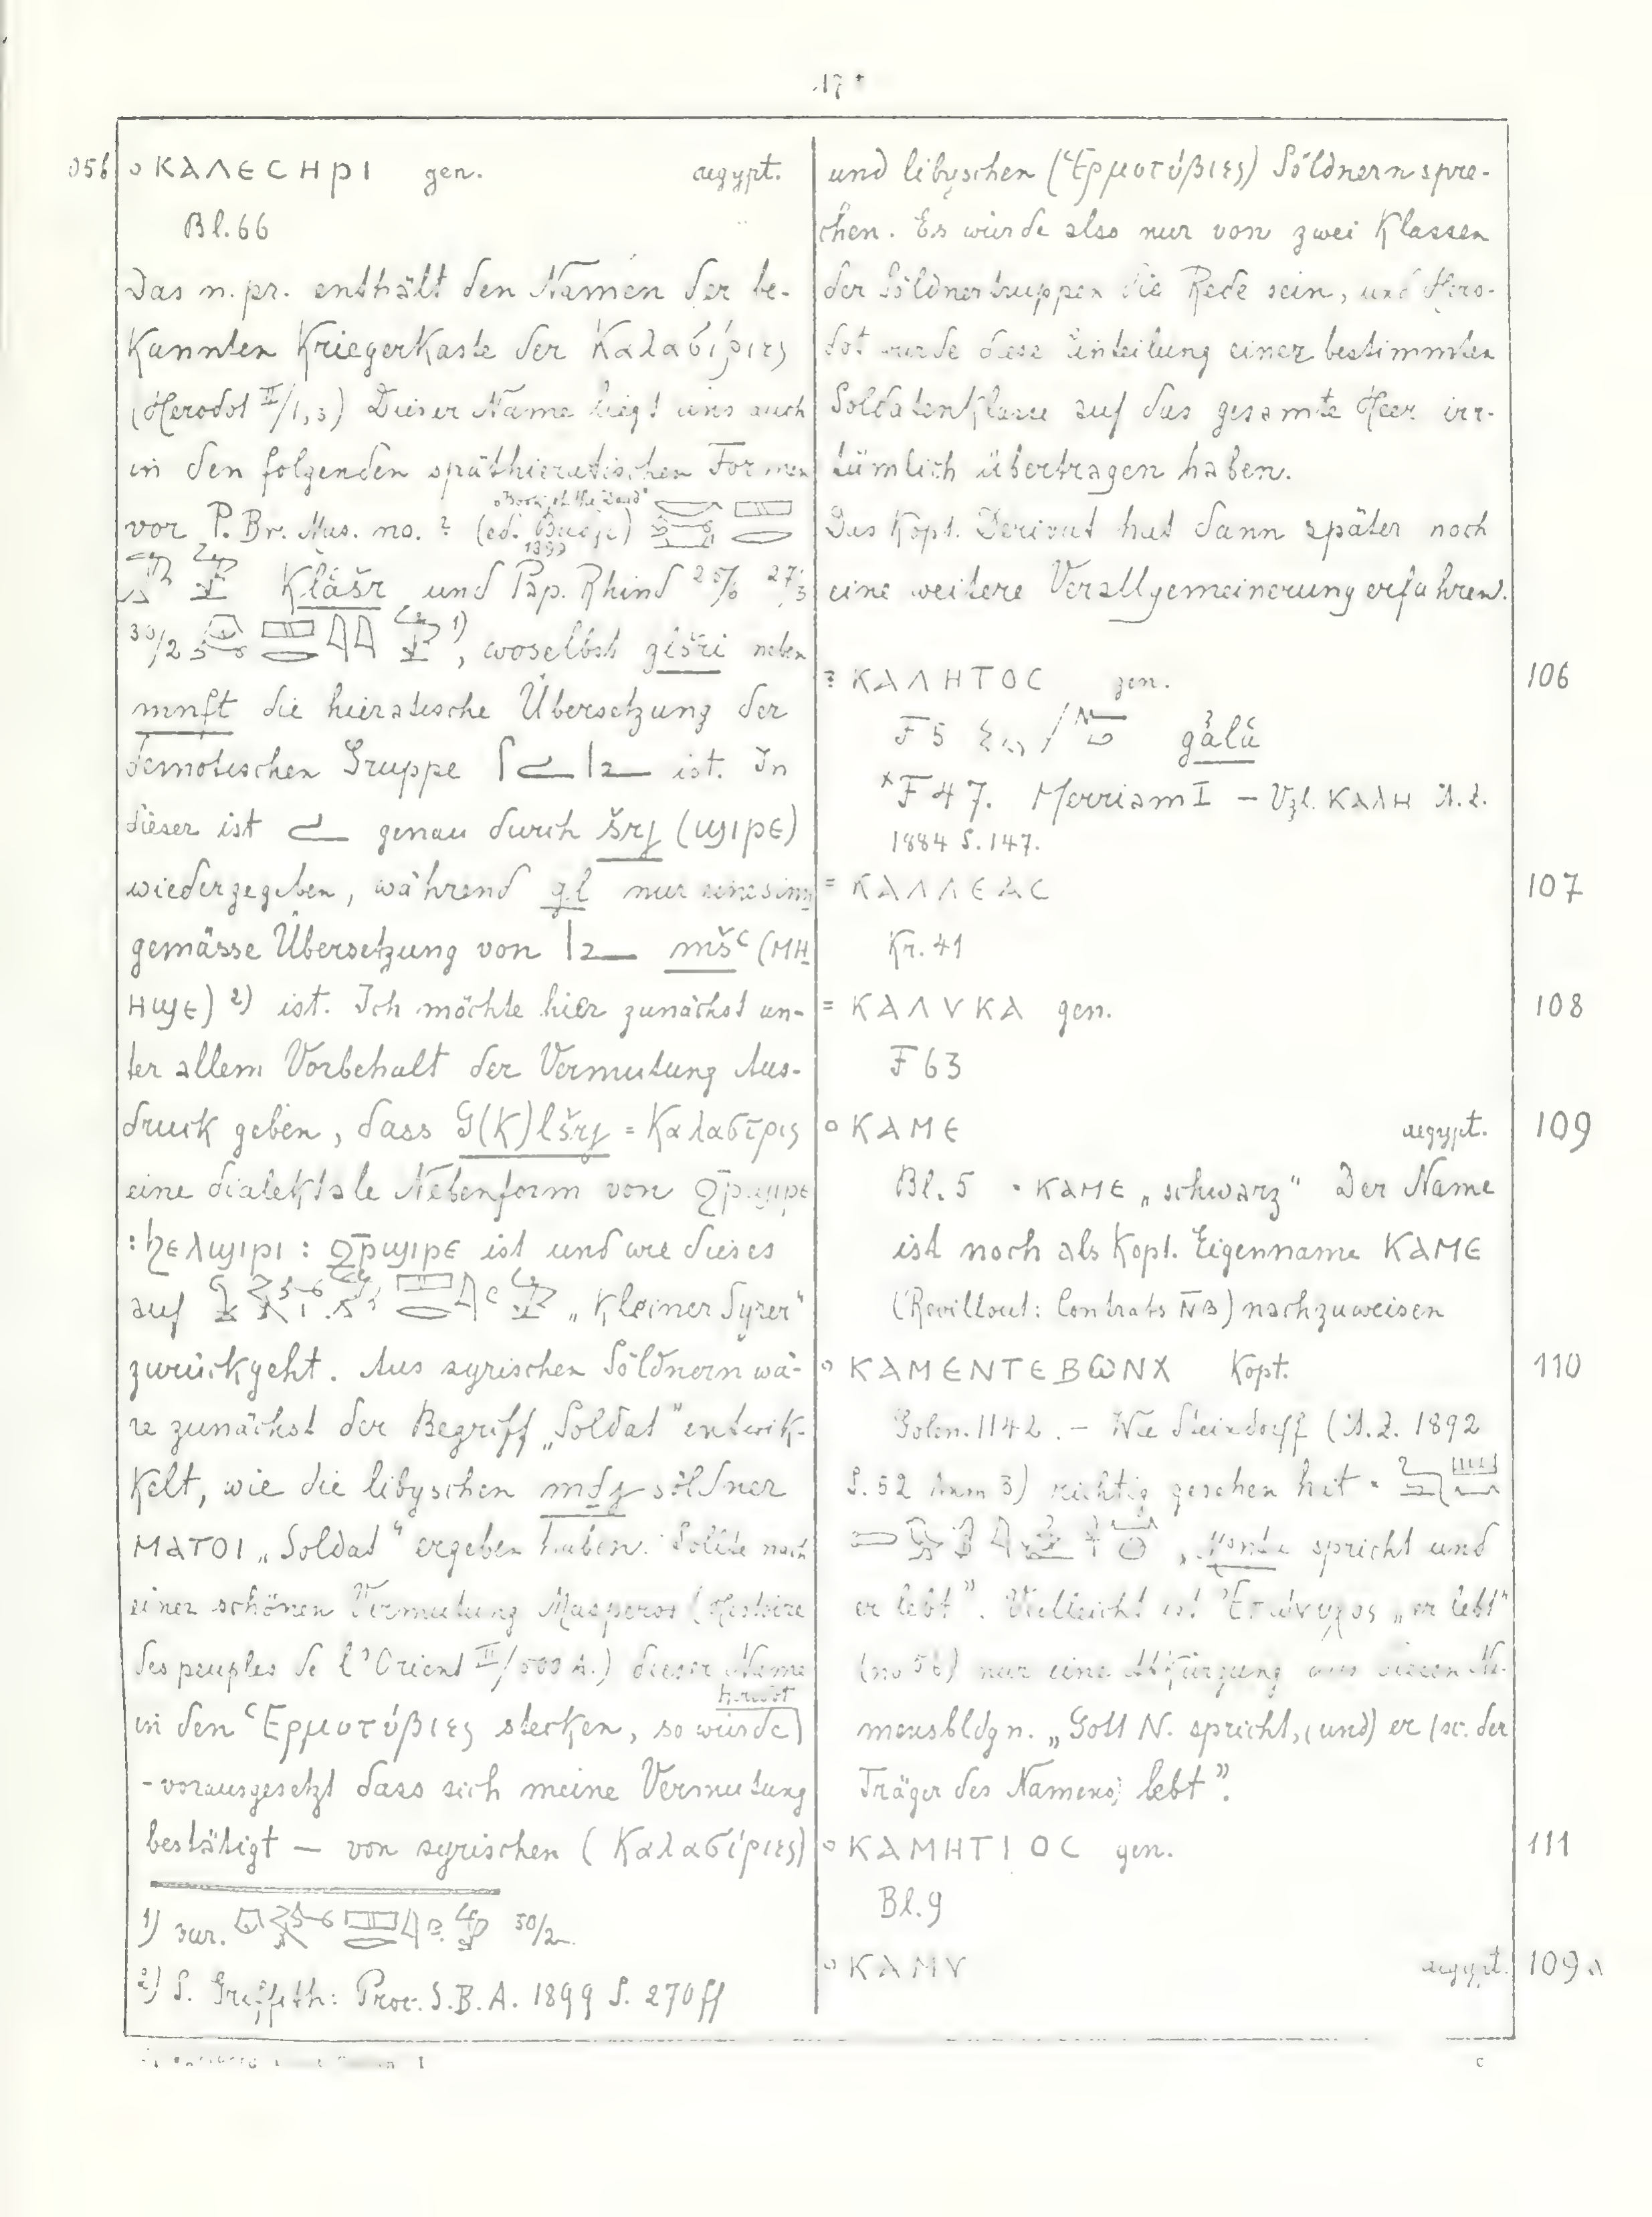 17*
056 ο ΚΑΛΕCΗΡΙ gen. aegypt.
Bl. 66
Das n. pr. enthält den Namen der be-
kannten Kriegerkaste der Καλασίριες
(Herodot II/1,3) Dieser Name liegt uns auch
in den folgenden späthieratischen Formen
„Book of the Dead"
vor P. Br. Mus. no. ? (ed. Budge)
1899
Klašr und Pap. Rhind
30/2 1), woselbst gišri neben
mnft die hieratische Übersetzung der
demotischen Gruppe ist. In
dieser ist genau durch šrj (ϣιρε)
wiedergegeben, während gl nur eine sinn
gemässe Übersetzung von mšꜥ (ΜΗ
Ηϣε) 2) ist. Ich möchte hier zunächst un-
ter allem Vorbehalt der Vermutung Aus-
druck geben, dass G(K)lšrj = Καλασῖρις
eine dialektale Nebenform von ϩρ̄ϣιρε
: ϧελϣιρι : ϩρ̄ϣιρε ist und wie dieses
auf „kleiner Syrer"
zurückgeht. Aus syrischen Söldnern wä-
re zunächst der Begriff „Soldat" entwik-
kelt, wie die libyschen mdj söldner
ΜΑΤΟΙ „Soldat" ergeben haben. Sollte nach
einer schönen Vermutung Masperos (Histoire
des peuples de l'Orient II/500 A.) dieser Name
Herodot
in den Ἑρμοτύβιες stecken, so würde
- vorausgesetzt dass sich meine Vermutung
bestätigt — von syrischen (Καλασίριες)
1) var. 30/2
2) S. Griffith: Proc. S.B.A. 1899 S. 270 ff
und libyschen (Ἑρμοτύβιες) Söldnern spre-
chen. Es würde also nur von zwei Klassen
der Söldnertruppen die Rede sein, und Hero-
dot würde diese Einteilung einer bestimmten
Soldatenklasse auf das gesamte Heer irr-
tümlich übertragen haben.
Das kopt. Derivat hat dann später noch
eine weitere Verallgemeinerung erfahren.
? ΚΑΛΗΤΟC gen. 106
F 5 gålå
*F 47. Merriam I – Vgl. ΚΑΛΗ Ä.Z.
1884 S. 147.
= ΚΑΛΛΕΑC 107
Kr. 41
= ΚΑΛVΚΑ gen. 108
F 63
ο ΚΑΜΕ aegypt. 109
Bl. 5 · ΚΑΜΕ „schwarz" Der Name
ist noch als kopt. Eigenname ΚΑΜΕ
(Revillout: Contrats) nachzuweisen
ο ΚΑΜΕΝΤΕΒωΝΧ Kopt. 110
Golen. 1142. – Wie Steindorff (Ä.Z. 1892
S. 52 Anm 3) richtig gesehen hat =
„ spricht und
er lebt". Vielleicht ist Ἐπώνυχος „er lebt"
(no 56) nur eine Abkürzung aus diesen Na-
mensbldgn. „Gott N. spricht, (und) er (sc. der
Träger des Namens) lebt".
ο ΚΑΜΗΤΙΟC gen. 111
Bl. 9
ο ΚΑΜV aegypt. 109a
c